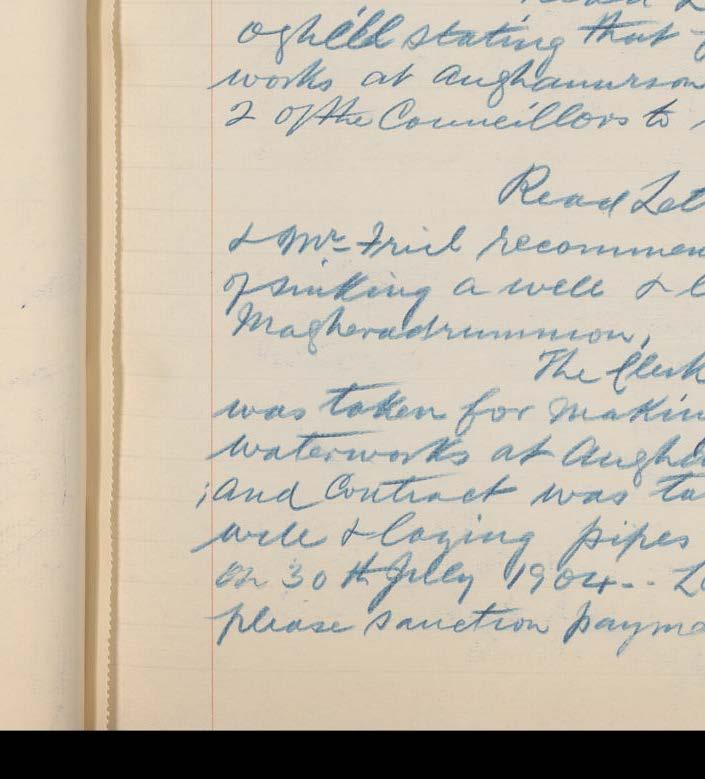 oghill stating that
works at Aughanurson
2 of the Councillors to
Read Let
& Mr Friel recommen
of sinking a well & l
Magheradrummon,
The Clerk
was taken for makin
waterworks at Augha
; and Contract was ta
well & laying pipes
on 30th July 1904-- L
please sanction payme